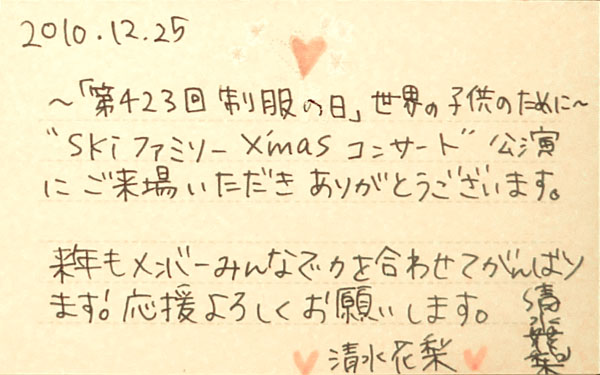 2010.12.25
～「第423回 制服の日」世界の子供のために～
"SKiファミリー X'mas コンサート" 公演
にご来場いただきありがとうございます。
来年もメンバーみんなで力を合わせてがんばり
ます!応援よろしくお願いします。
清水花梨